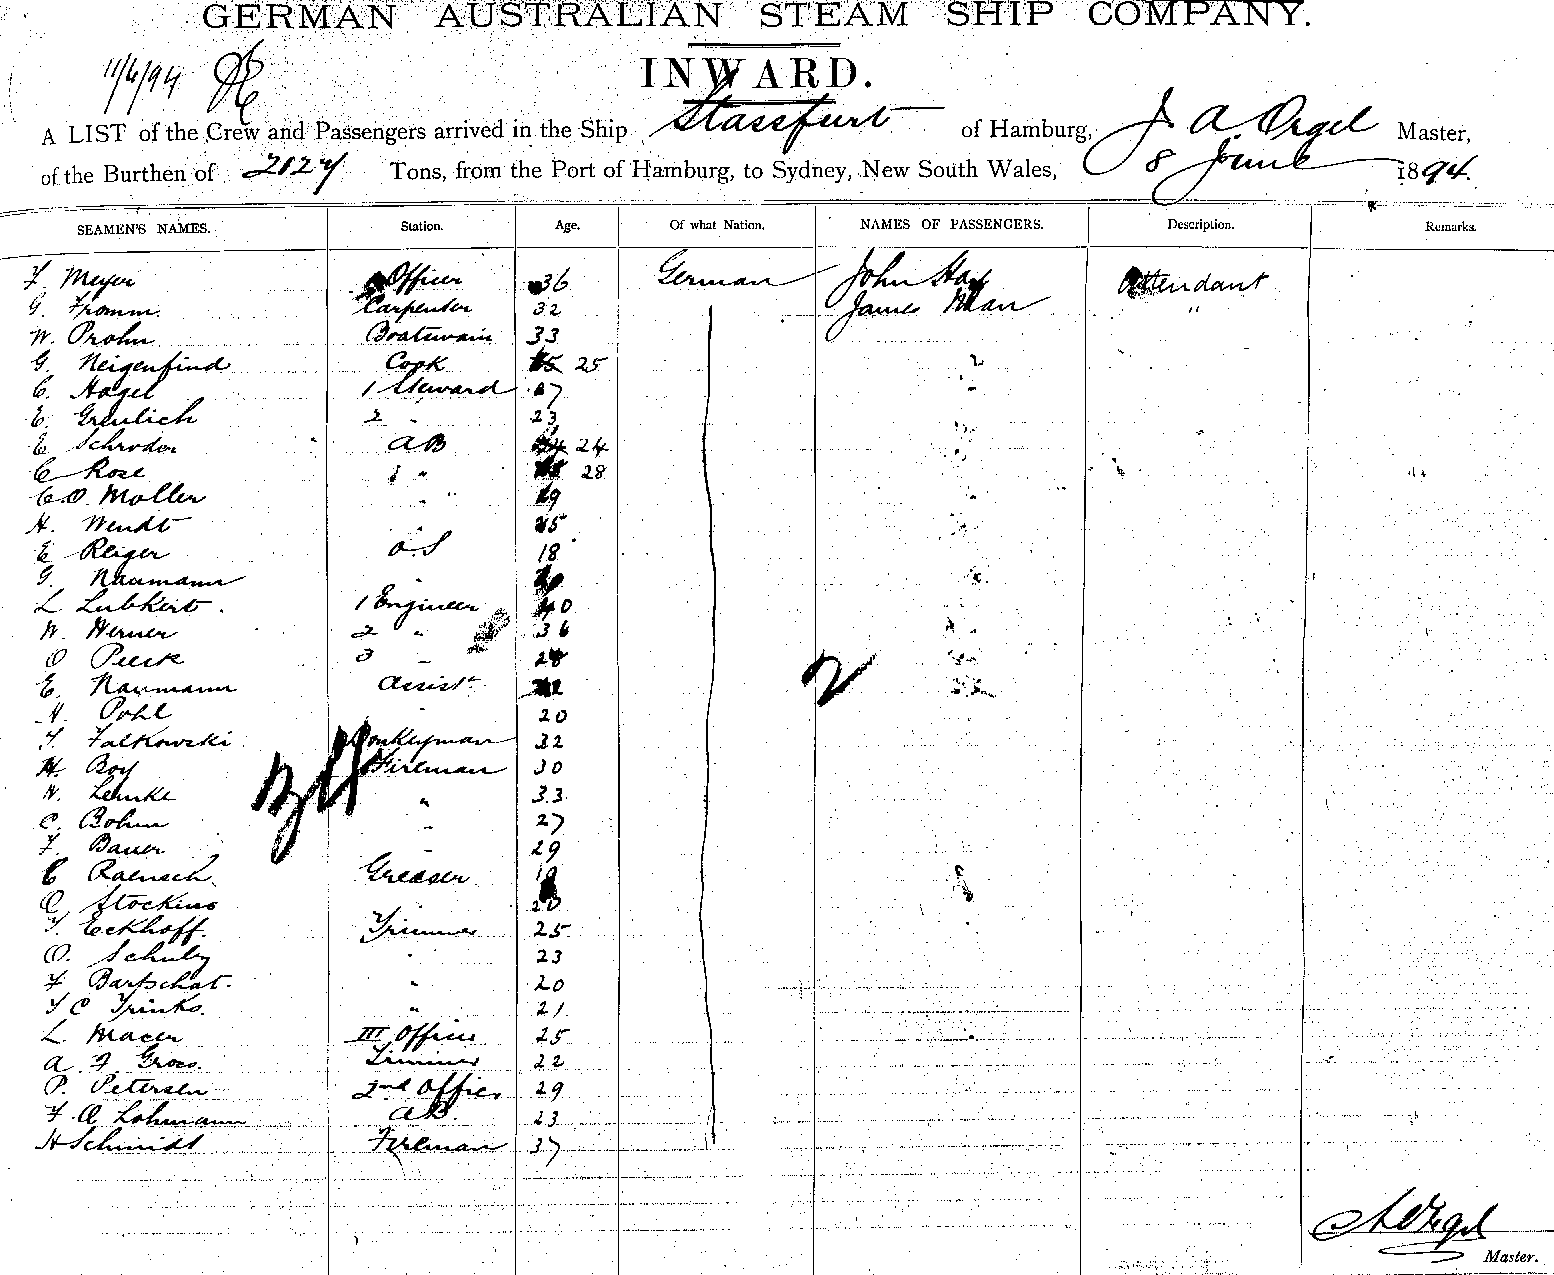 GERMAN AUSTRALIAN STEAM SHIP COMPANY.
INWARD.
11/6/94
A LIST of the Crew and Passengers arrived in the Ship Stassfurt of Hamburg, J A. Orgel Master,
of the Burthen of 2027 Tons, from the Port of Hamburg, to Sydney, New South Wales, 8 June 1894.
SEAMEN'S NAMES. Station. Age. Of what Nation. NAMES OF PASSENGERS. Description. Remarks.
F Meyer Officer 36 German John Hay Attendant
G. Fromm. Carpenter 32 James Man "
W. Prohn Boatswain 33
G. Neigenfind Cook 25
C. Hagel 1 Steward 27
E. Greulich 2 " 23
E Schroder AB 24
C Rose " 28
C.O. Moller " 29
H. Wendt " 25
E Reiger O.S 18
G. Naumann "
L Lubkert. 1 Engineer 40
W. Werner 2 " 36
O Pieck 3 " 28
E. Naumann Assist
H. Pohl 20
F. Falkowski Donkeyman 32
H. Boy Fireman 30
W. Lemke " 33
C. Bohm " 27
F. Bauer " 29
C Raensch Greaser
O Stockins 20
F. Eckhoff. Trimmer 25
O. Schulz " 23
F Bartschat. " 20
F C Trinks. " 21
L Macer III Officer 25
A. F Gross. Trimmer 22
P. Petersen 2nd Officer 29
F. A Lohmann AB 23
H Schmidt Fireman 37
2
34
A Orgel
Master.